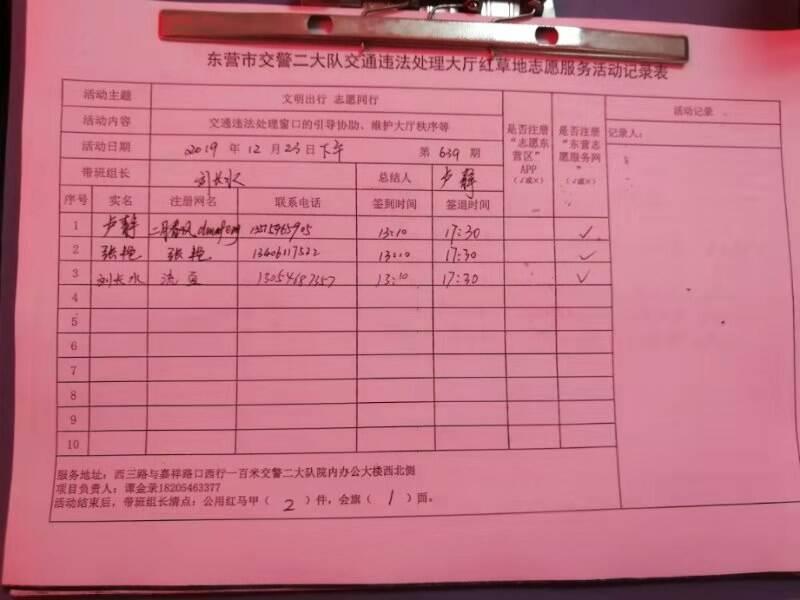 东营市交警二大队交通违法处理大厅红草地志愿服务活动记录表
活动主题 文明出行 志愿同行 活动记录
活动内容 交通违法处理窗口的引导协助、维护大厅秩序等 记录人:
活动日期 2019 年 12 月 23 日下午 第 639 期
带班组长 刘长水 总结人 卢静
是否注册“志愿东营区”APP(√或×)
是否注册“东营志愿服务网”(√或×)
序号 实名 注册网名 联系电话 签到时间 签退时间
1 卢静 二月春风 13:10 17:30 ✓
2 张艳 张艳 13406117522 13:10 17:30 ✓
3 刘长水 流星 13054687357 13:10 17:30 ✓
4
5
6
7
8
9
10
服务地址:西三路与嘉祥路口西行一百米交警二大队院内办公大楼西北侧
项目负责人:谭金录18205463377
活动结束后,带班组长清点:公用红马甲( 2 )件,会旗( 1 )面。